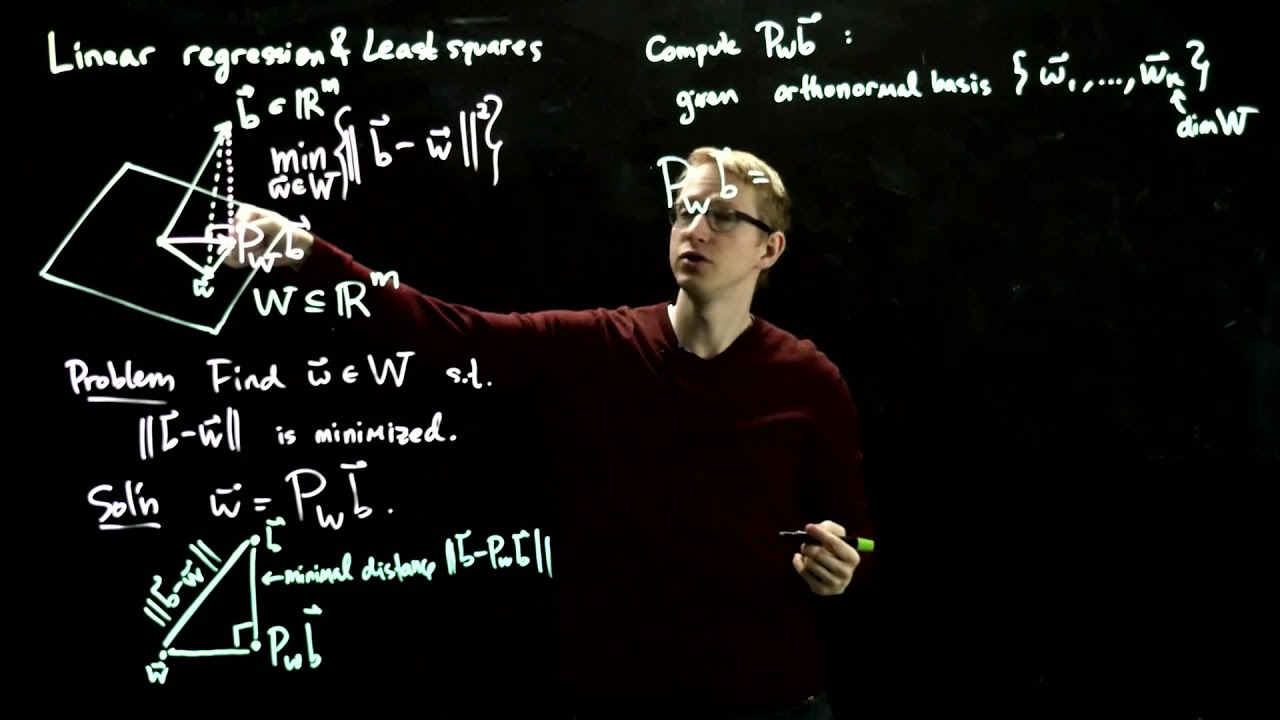 Linear regression & Least squares
b⃗ ∈ ℝᵐ
min {‖b⃗ - w⃗‖²}
w⃗∈W
P_W b⃗
w⃗
W ⊆ ℝᵐ
Problem Find w⃗ ∈ W s.t.
‖b⃗-w⃗‖ is minimized.
Sol'n w⃗ = P_W b⃗.
b⃗
‖b⃗-w⃗‖
←minimal distance ‖b⃗-P_W b⃗‖
P_W b⃗
w⃗
Compute P_W b⃗ :
given orthonormal basis {w⃗₁,...,w⃗ₖ}
↑
dim W
P_W b⃗ =